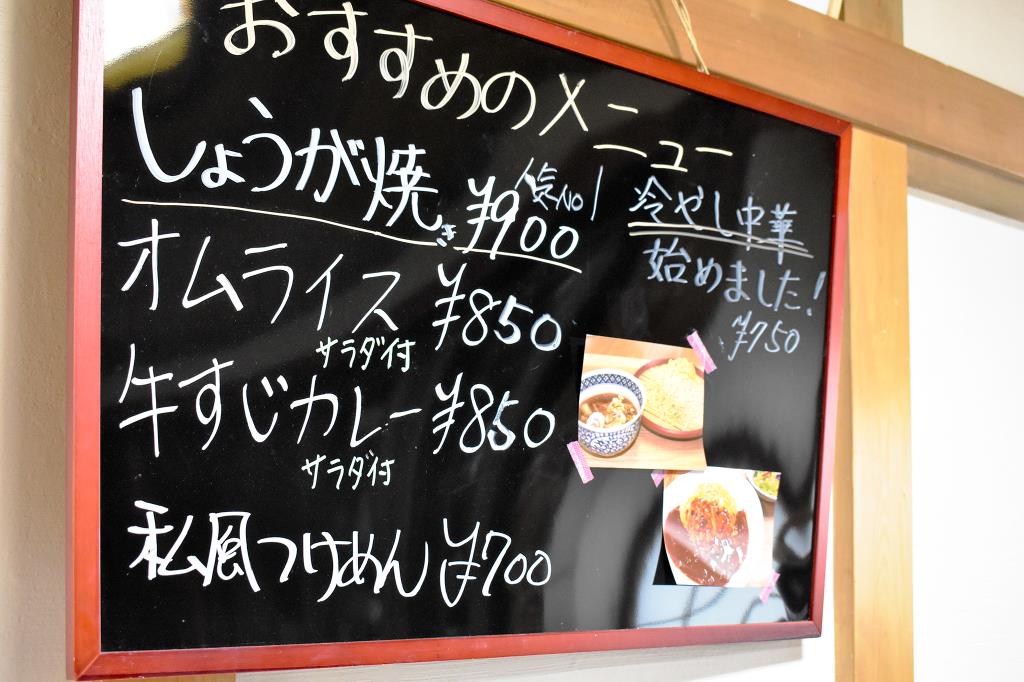 おすすめのメニュー
しょうが焼き ¥900
人気No1
オムライス ¥850
サラダ付
牛すじカレー ¥850
サラダ付
私風つけめん ¥700
冷やし中華
始めました!
¥750